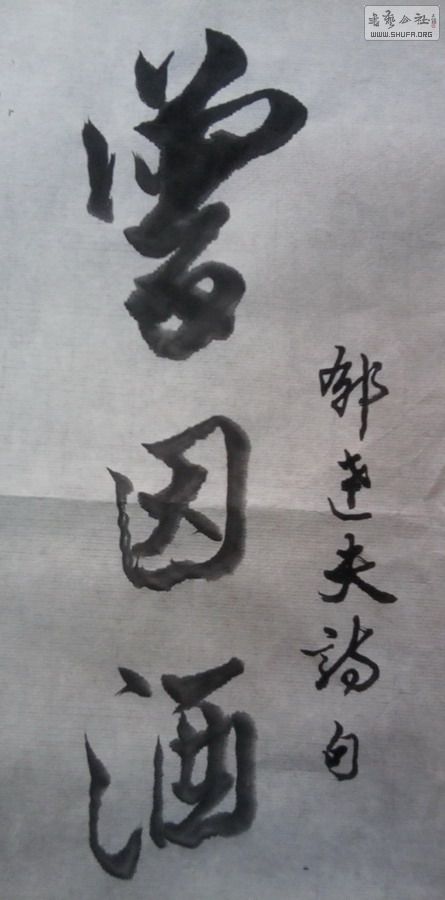 書藝公社
WWW.SHUFA.ORG
郁達夫詩句
曾因酒